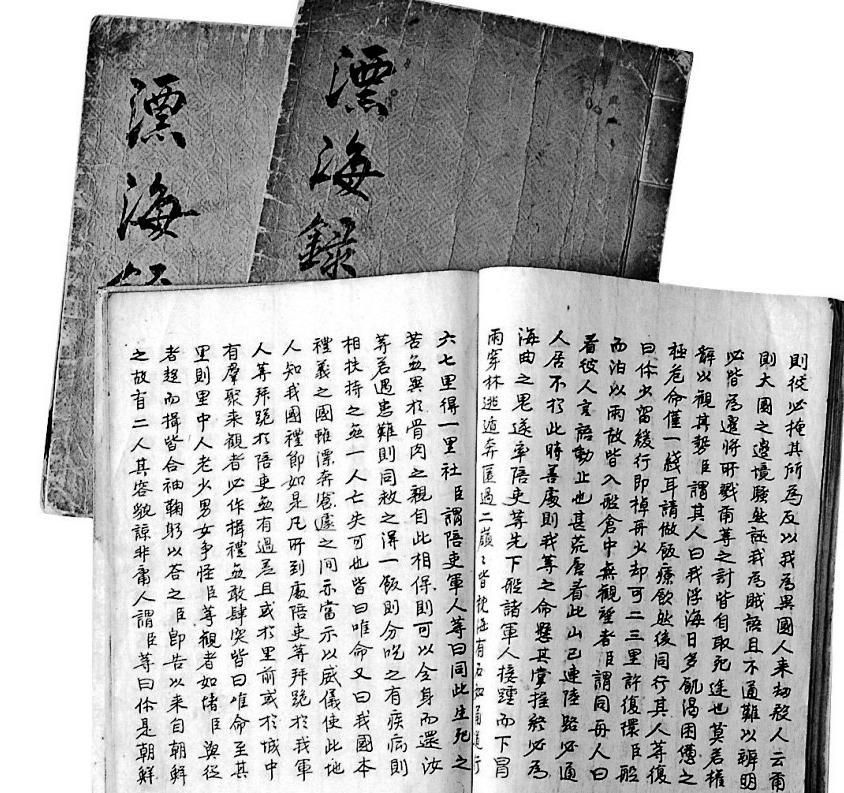 漂海錄
漂海
則從必掩其所為反以我為異國人来劫殺人云爾
則大國之邊境騷然誣我為賊語且不通難以辨明
必皆為邊將所戮爾等之計皆自取死途也莫若權
辭以觀其勢臣謂其人曰我浮海日多飢渴困憊之
極危命僅一綫耳請做飯療飲然後同行其人等復
曰你少留緩行即棹舟少却可二三里許復環臣船
而泊以雨故皆入船倉中無觀望者臣謂同舟人曰
看彼人言語動止也甚荒唐看此山已連陸路必通
人居不於此時善處則我等之命懸其掌握終必為
海曲之鬼遂率陪吏等先下船諸軍人接踵而下冒
雨穿林逃遁奔匿過二嶺々皆枕海有石如甬道行
六七里得一里社臣謂陪吏軍人等曰同此生死之
苦無異於骨肉之親自此相保則可以全身而還汝
等若遇患難則同救之得一飯則分吃之有疾病則
相扶持之無一人亡失可也皆曰唯命又曰我國本
禮義之國雖漂奔窘遽之間亦當示以威儀使此地
人知我國禮節如是凡所到處陪吏等拜跪於我軍
人等拜跪於陪吏無有過差且或於里前或於城中
有羣聚来觀者必作揖禮無敢肆突皆曰唯命至其
里則里中人老少男女爭怪臣等觀者如堵臣與從
者趨而揖皆合袖鞠躬以答之臣即告以来自朝鮮
之故有二人其容貌諒非庸人謂臣等曰你是朝鮮